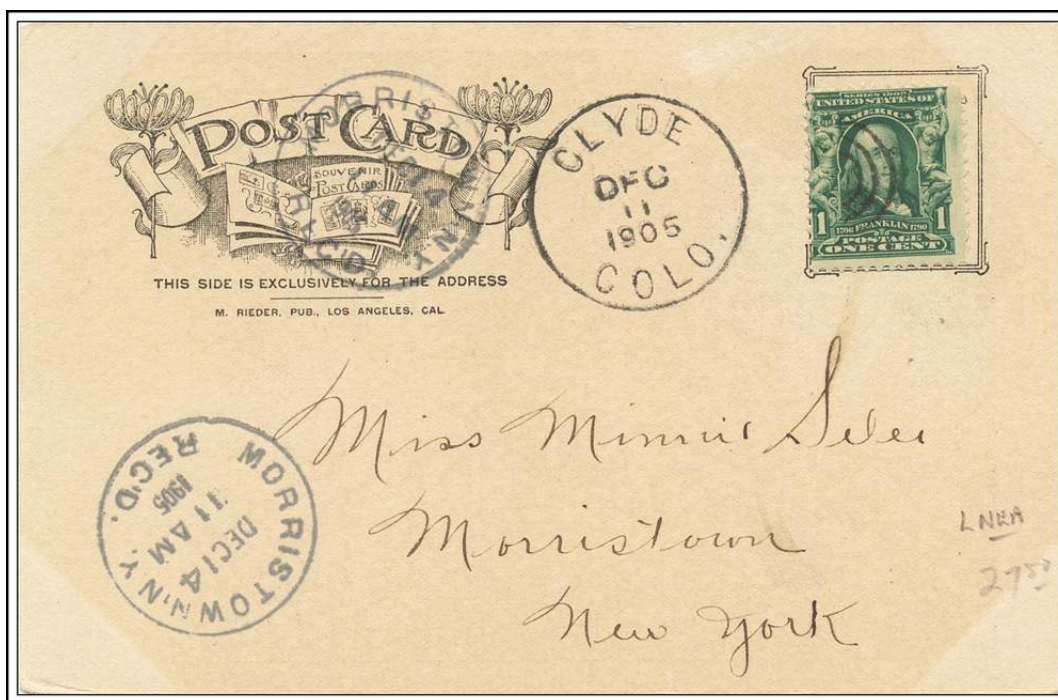 POST CARD
SOUVENIR
POST CARDS
THIS SIDE IS EXCLUSIVELY FOR THE ADDRESS
M. RIEDER, PUB., LOS ANGELES, CAL.
CLYDE
DEC
11
1905
COLO.
SERIES 1902
UNITED STATES OF
AMERICA
1706 FRANKLIN 1790
1 POSTAGE 1
ONE CENT
Miss Minnie
Morristown
New York
MORRISTOWN, N.Y.
DEC 14
11 AM
1905
REC'D.
27 50